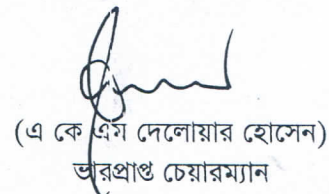 (এ কে এম দেলোয়ার হোসেন)
ভারপ্রাপ্ত চেয়ারম্যান